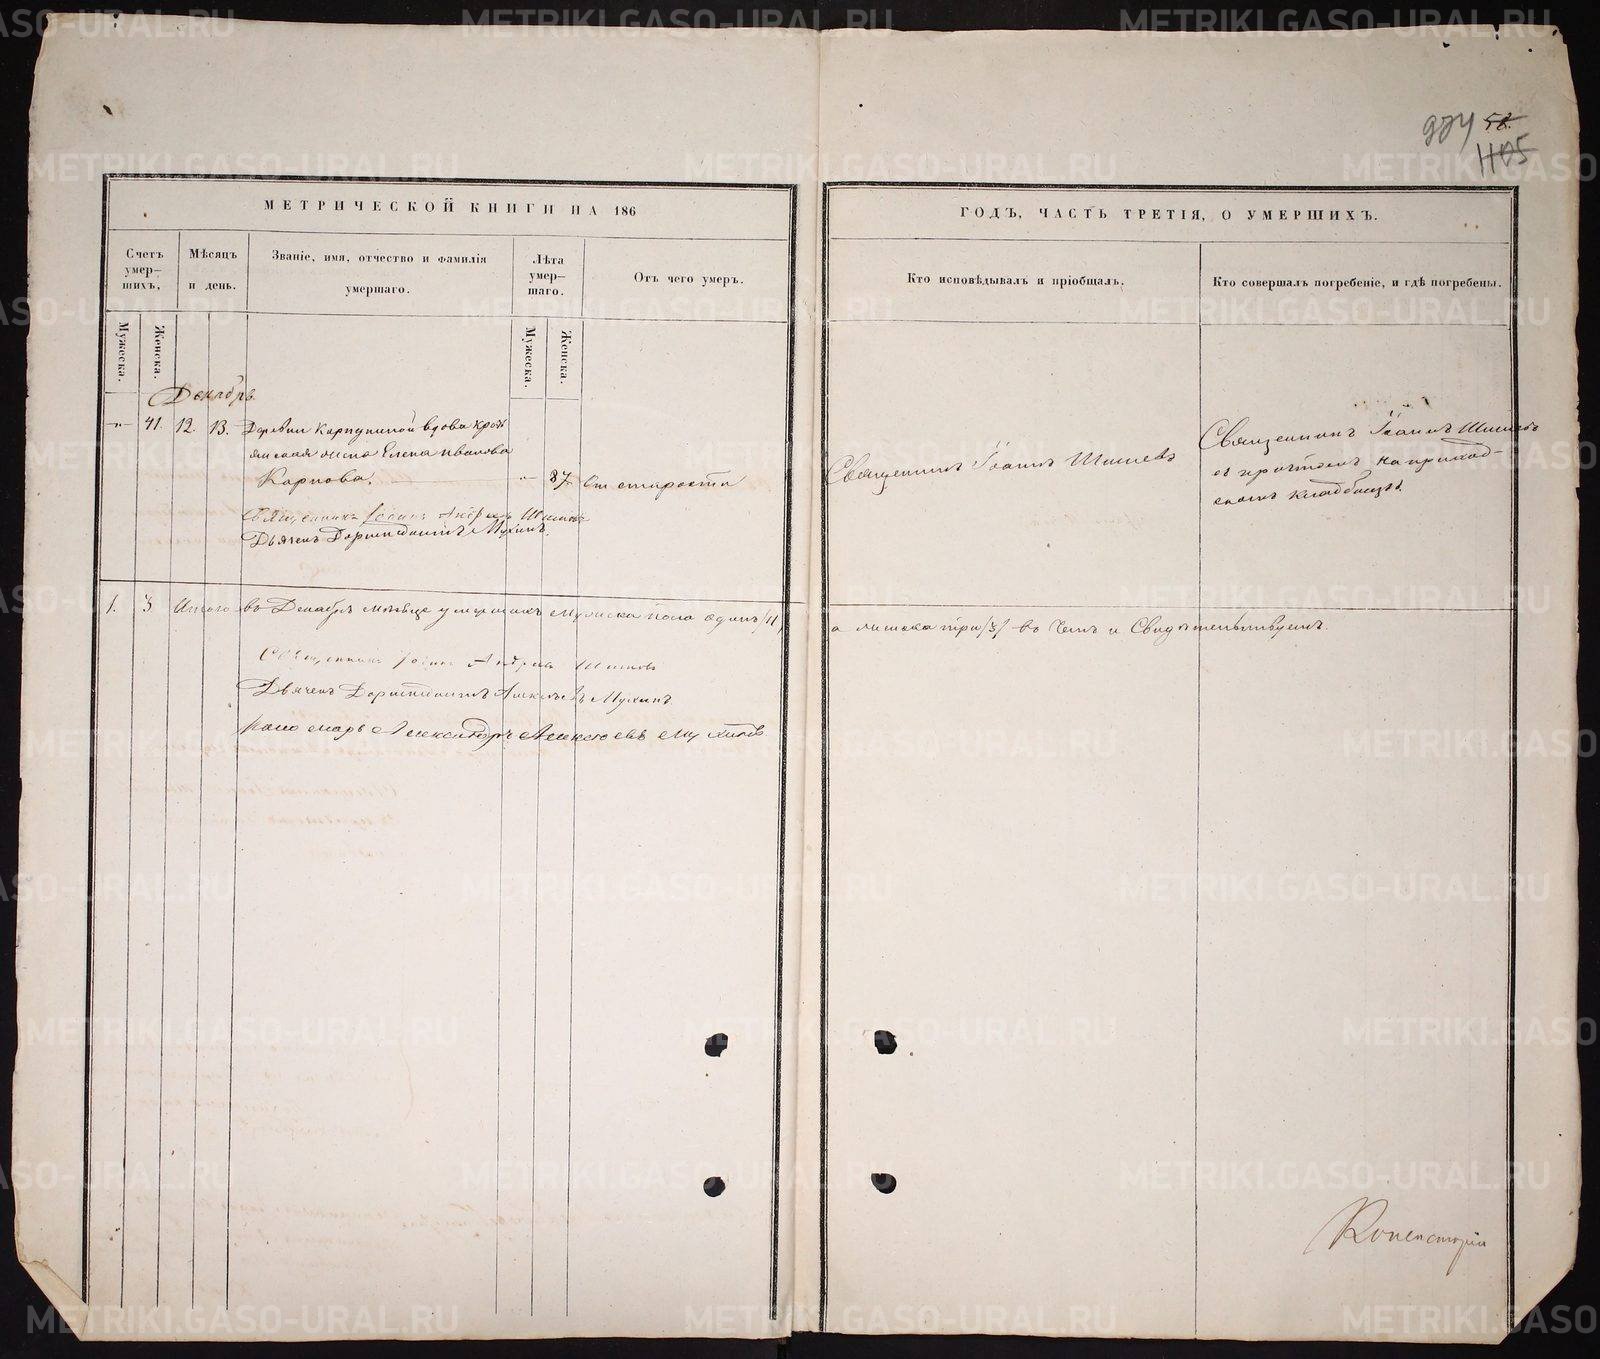 974 58.
1105
МЕТРИЧЕСКОЙ КНИГИ НА 186
ГОДЪ, ЧАСТЬ ТРЕТІЯ, О УМЕРШИХЪ.
Счетъ умер—шихъ.
Мѣсяцъ и день.
Званіе, имя, отчество и фамилія умершаго.
Лѣта умер—шаго.
Отъ чего умеръ.
Кто исповѣдывалъ и пріобщалъ.
Кто совершалъ погребеніе, и гдѣ погребены.
Мужеска.
Женска.
Мужеска.
Женска.
Декабрь.
-"- 41. 12. 13. Деревни вдова крест
янская жена Елена Иванова
Карпова. -"- 87 От старости
Священникъ Іоаннъ Шишевъ
Священникъ Іоаннъ Шишевъ
съ причтомъ на приход-
скомъ кладбищѣ.
Священникъ Іоаннъ Андреевъ Шишевъ
Дьячекъ Доримедонтъ Мухинъ.
1. 3 Итого во Декабрѣ мѣсяце умершихъ мужеска пола одинъ /1/,
а женска три /3/ въ чемъ и Свидѣтельствуемъ.
Священникъ Іоаннъ Андреевъ Шишевъ
Дьячекъ Доримедонтъ Алексѣевъ Мухинъ
Пономарь Александръ Алексѣевъ Мухинъ
Консисторіи
METRIKI.GASO-URAL.RU